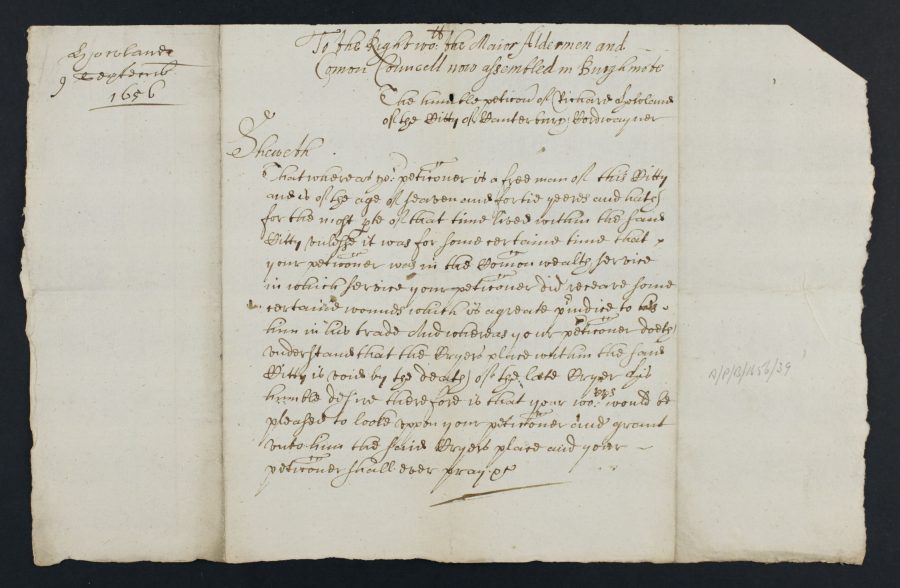 Howland
9 Septemb
1656
To the Right wo:th the Maior Aldermen and
Comon Councell now assembled in Burghmote
The humble peticon of Richard Howland
of the Citty of Canterbury Cordwayner
Sheweth
That whereas yo:r peticoner is a free man of this Citty
and is of the age of seaven and fortie yeeres and hath
for the most pte of that time lived within the said
Citty unlesse it was for some certaine time that
your peticoner was in the Comon wealth service
in which service your peticoner did receave some
certaine wounds which is a greate piudice to
him in his trade And whereas your peticoner doeth
understand that the Cryers place within the said
Citty is void by the death of the late Cryer his
humble desire therefore is that your wo:rps would be
pleased to looke uppon your peticoner and grant
unto him the said Cryers place and your
peticoner shall ever pray &c
A/P/B/1656/39